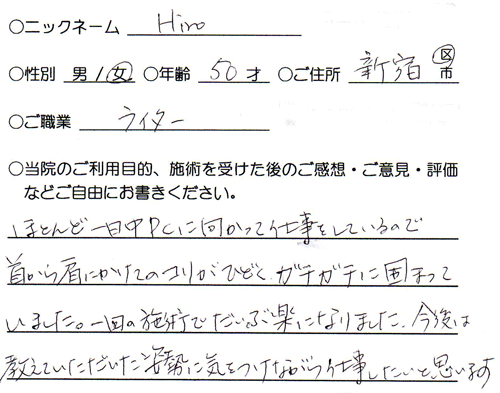 ○ニックネーム Hiro
○性別 男 / 女 ○年齢 50 才 ○ご住所 新宿 区 市
○ご職業 ライター
○当院のご利用目的、施術を受けた後のご感想・ご意見・評価
などご自由にお書きください。
ほとんど一日中PCに向かって仕事をしているので
首から肩にかけてのコリがひどく、ガチガチに固まって
いました。一回の施術でだいぶ楽になりました。今後は
教えていただいた姿勢に気をつけながら仕事したいと思います